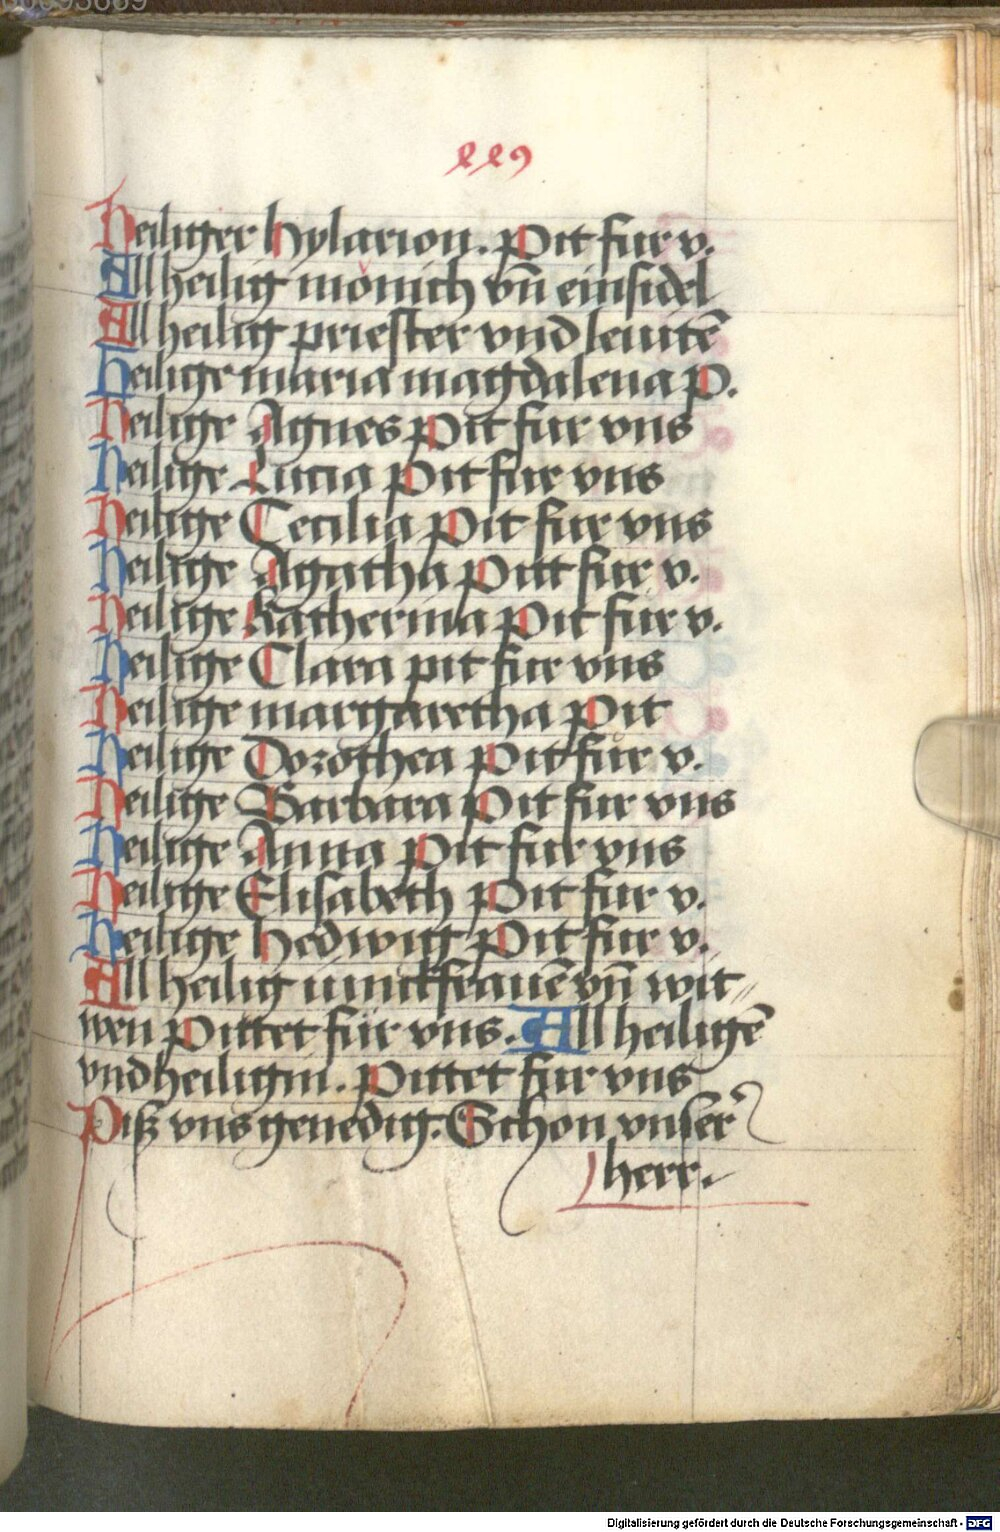 229
Heiliger Hylarion. Pit fur v.
All heilig mönich vn̄ einsidel
All heilig priester vnd leuitē
Heilige maria magdalena P.
Heilige Agnes Pit fur vns
Heilige Lucia Pit fur vns
Heilige Cecilia Pit fur vns
Heilige Agatha Pitt fur v.
Heilige Katherina Pit fur v.
Heilige Clara pit fur vns
Heilige margaretha Pit
Heilige Dorothea Pit fur v.
Heilige Barbara Pit fur vns
Heilige Anna Pit fur vns
Heilige Elisabeth Pit fur v.
Heilige Hedwig Pit fur v.
All heilig iunckfrauē vn̄ wit⸗
wen Pittet fur vns. All heiligē
vnd heiligin. Pittet fur vns
Piß vns genedig. Schon vnser
herr.
Digitalisierung gefördert durch die Deutsche Forschungsgemeinschaft - DFG